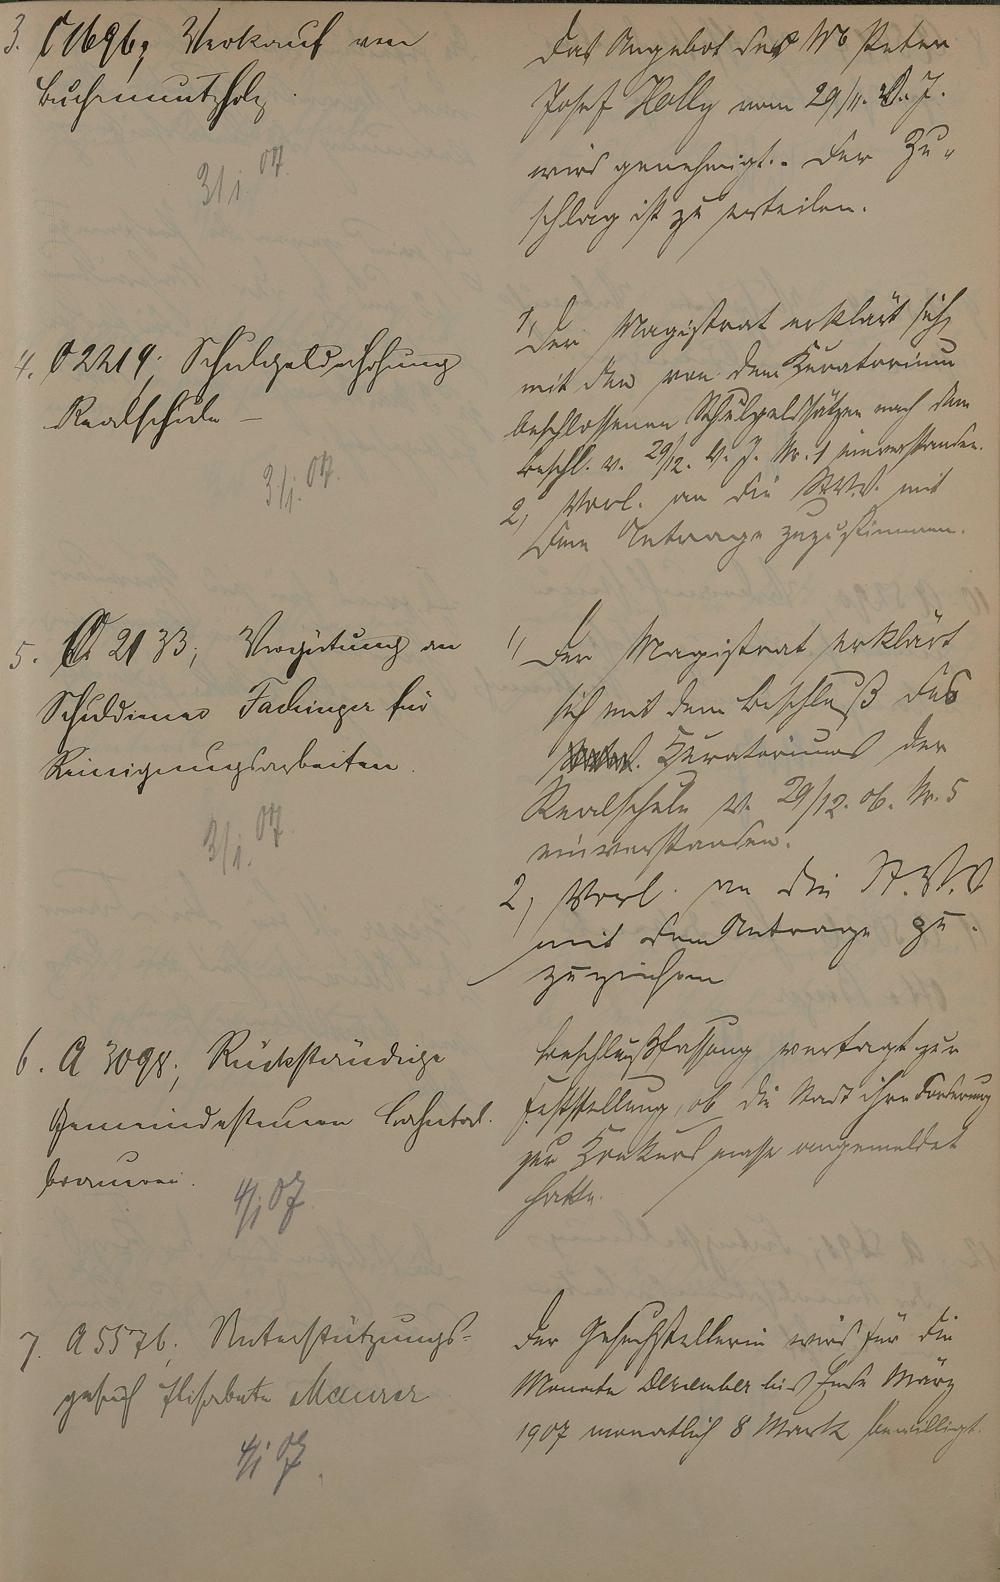 3. C 1696; Verkauf von
Buchennutzholz.
3/1. 07.
Das Angebot des Peter
Josef Holly vom 29/11. v. J.
wird genehmigt. - Der Zu-
schlag ist zu erteilen.
4. C 2219; Schulgelderhöhung
Realschule -
3/1. 07.
1, Der Magistrat erklärt sich
mit den von dem Kuratorium
beschlossenen Schulgeldsätzen nach dem
Beschl. v. 29/12. v. J. Nr. 1 einverstanden.
2, Vorl. an die St.V.V. mit
dem Antrage zuzustimmen.
5. C 2133; Vergütung an
Schuldiener Fachinger für
Reinigungsarbeiten.
3/1. 07.
1, Der Magistrat erklärt
sich mit dem Beschluß des
Kuratoriums der
Realschule v. 29/12. 06. Nr. 5
einverstanden.
2, Vorl. an die St.V.V
mit dem Antrage
6. A 3098; Rückständige
Gemeindesteuern Lahntal-
brauerei.
4/1 07
Beschlußfassung vertagt zur
Feststellung, ob die Stadt ihre Forderung
zur Konkursmasse angemeldet
hatte.
7. A 5576; Unterstützungs-
gesuch Elisabeta Maurer
4/1 07.
Der Gesuchstellerin wird für die
Monate Dezember bis Ende März
1907 monatlich 8 Mark bewilligt.